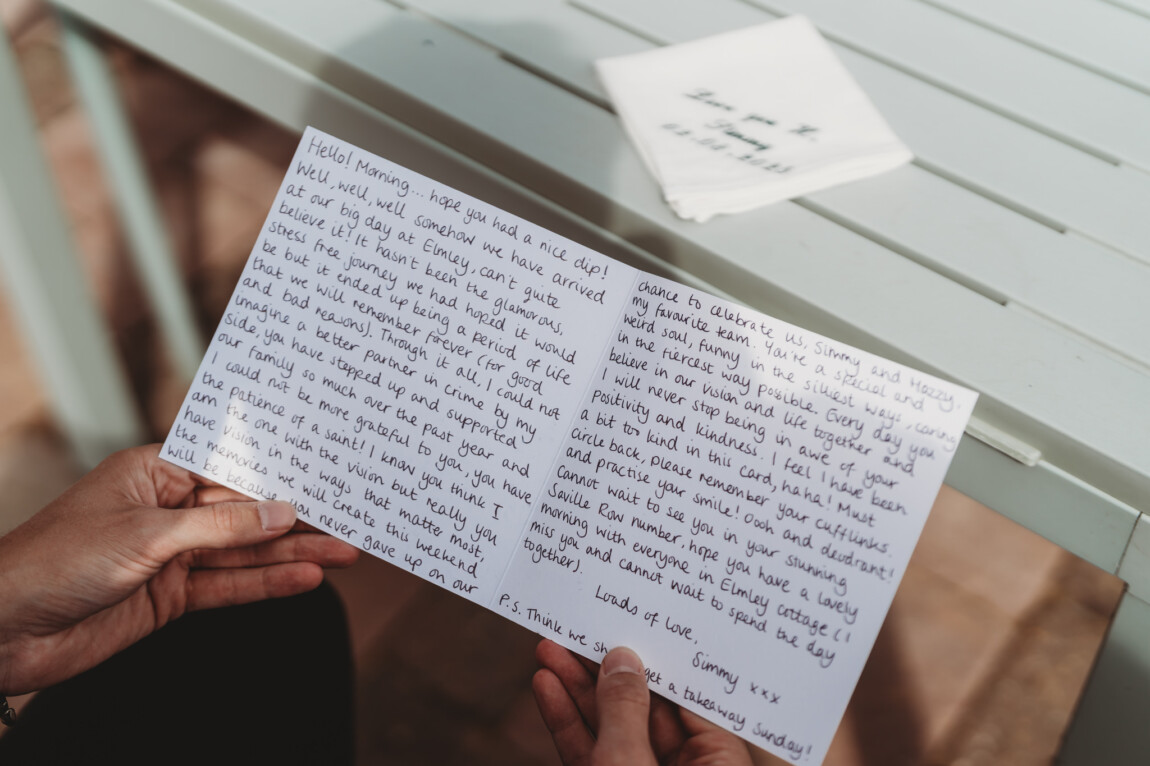 Love you
Simmy
Hello! Morning... hope you had a nice dip!
Well, well, well somehow we have arrived
at our big day at Elmley, can't quite
believe it! It hasn't been the glamorous,
stress free journey we had hoped it would
be but it ended up being a period of life
that we will remember forever (for good
and bad reasons). Through it all, I could not
imagine a better partner in crime by my
side, you have stepped up and supported
our family so much over the past year and
I could not be more grateful to you, you have
the patience of a saint! I know you think I
am the one with the vision but really you
have vision in the ways that matter most,
the memories we will create this weekend
will be because you never gave up on our
chance to celebrate us, Simmy and Mozzy,
my favourite team. You're a special and
weird soul, funny in the silliest ways, caring
in the fiercest way possible. Every day you
believe in our vision and life together and
I will never stop being in awe of your
positivity and kindness. I feel I have been
a bit too kind in this card, haha! Must
circle back, please remember your cufflinks
and practise your smile! Ooh and deodrant!
Cannot wait to see you in your stunning
Saville Row number, hope you have a lovely
morning with everyone in Elmley cottage (I
miss you and cannot wait to spend the day
together).
Loads of love,
Simmy xxx
P.S. Think we get a takeaway Sunday!